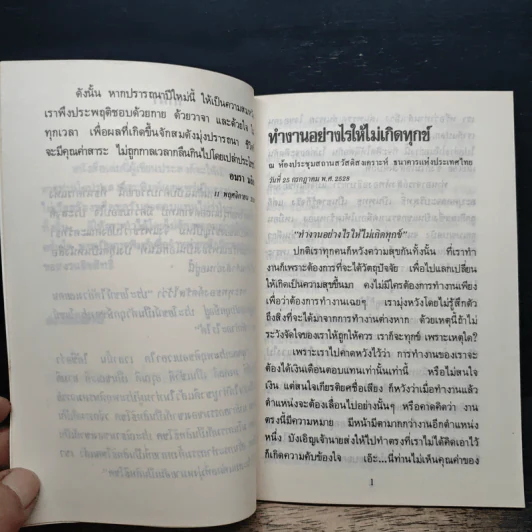 ดังนั้น หากปรารถนาปีใหม่นี้ ให้เป็นความ
เราพึงประพฤติชอบด้วยกาย ด้วยวาจา และด้วยใจ
ทุกเวลา เพื่อผลที่เกิดขึ้นจักสมดังมุ่งปรารถนา
จะมีคุณค่าสาระ ไม่ถูกกาลเวลากลืนกินไปโดยเปล่า
อมรา
๑๑ พฤศจิกายน
ทำงานอย่างไรให้ไม่เกิดทุกข์
ณ ห้องประชุมสถานสวัสดิสงเคราะห์ ธนาคารแห่งประเทศไทย
วันที่ 25 กรกฎาคม พ.ศ.2528
"ทำงานอย่างไรให้ไม่เกิดทุกข์"
ปกติเราทุกคนก็หวังความสุขกันทั้งนั้น ที่เราทำ
งานก็เพราะต้องการที่จะได้วัตถุปัจจัย เพื่อไปแลกเปลี่ยน
ให้เกิดเป็นความสุขขึ้นมา คงไม่มีใครต้องการทำงานเพียง
เพื่อว่าต้องการทำงานเฉยๆ เรามุ่งหวังโดยไม่รู้สึกตัว
ถึงสิ่งที่จะได้มาจากการทำงานต่างหาก ด้วยเหตุนี้ถ้าไม่
ระวังจัดใจของเราให้ถูกให้ควร เราก็จะทุกข์ เพราะเหตุใด?
เพราะเราไปคาดหวังไว้ว่า การทำงานของเราจะ
ต้องได้เงินเดือนตอบแทนเท่านั้นเท่านี้ หรือไม่สนใจ
เงิน แต่สนใจเกียรติยศชื่อเสียง ก็หวังว่าเมื่อทำงานแล้ว
ตำแหน่งจะต้องเลื่อนไปอย่างนั้นๆ หรือคาดคิดว่า งาน
ตรงนี้มีความหมาย มีหน้ามีตามากกว่างานอีกตำแหน่ง
หนึ่ง บังเอิญเจ้านายส่งให้ไปทำตรงที่เราไม่ได้คิดเอาไว้
ก็เกิดความคับข้องใจ เอ๊ะ...นี่ท่านไม่เห็นคุณค่าของ
1